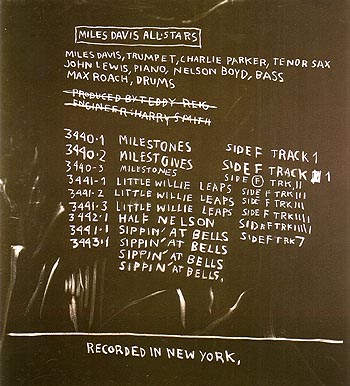 MILES DAVIS ALL·STARS
MILES DAVIS, TRUMPET, CHARLIE PARKER, TENOR SAX
JOHN LEWIS, PIANO, NELSON BOYD, BASS
MAX ROACH, DRUMS
PRODUCED BY TEDDY REIG
ENGINEER: HARRY SMITH
3440·1 MILESTONES SIDE F TRACK 1
3440·2 MILESTONES SIDE F TRACK 1
3440-3 MILESTONES SIDE F TRK II
3441-1 LITTLE WILLIE LEAPS SIDE F TRK III
3441·2 LITTLE WILLIE LEAPS SIDE F TRK III
3441·3 LITTLE WILLIE LEAPS SIDE F TRK IIII
3442·1 HALF NELSON SIDE F TRK IIIII
3441·1 SIPPIN' AT BELLS SIDE F TRK 7
3443·1 SIPPIN' AT BELLS
SIPPIN' AT BELLS
SIPPIN' AT BELLS,
RECORDED IN NEW YORK,